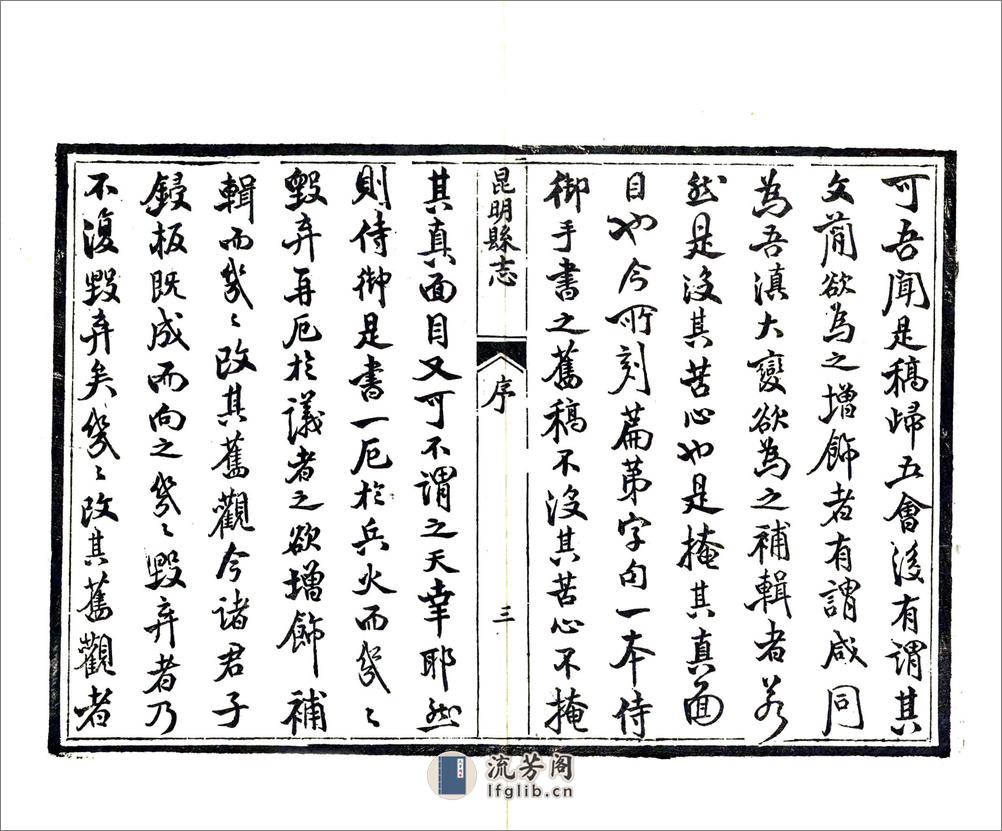 可吾聞是稿歸五會後有謂其
文簡欲為之增飾者有謂咸同
為吾滇大變欲為之補輯者若
然是沒其苦心也是掩其真面
目也今所刻篇第字句一本侍
御手書之舊稿不沒其苦心不掩
昆明縣志
序
三
其真面目又可不謂之天幸耶然
則侍御是書一厄於兵火而幾〻
毀弃再厄於議者之欲增飾補
輯而幾〻改其舊觀今諸君子
鋟板既成而向之幾〻毀弃者乃
不復毀弃矣幾〻改其舊觀者
流芳阁
lfglib.cn